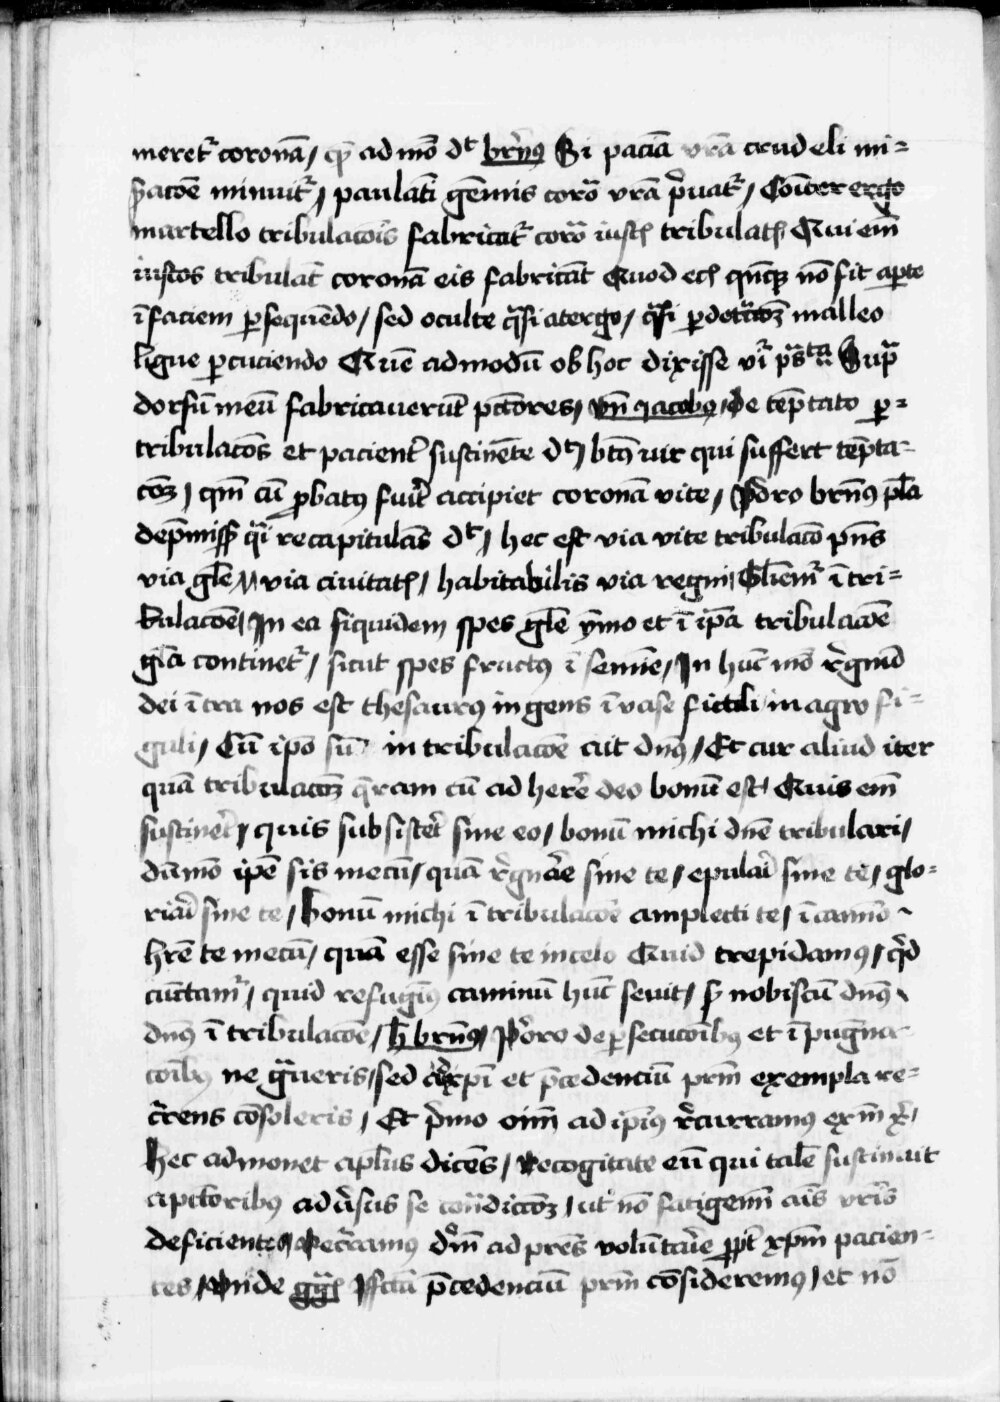 meret᷑ coronā / qꝫ ad mō dt brn̄us Si paciā vrā crudeli mi=
nuit᷑ / paulati gēmis corō vrā p̄uat᷑ / ergo
martello tribulacois fabricat᷑ corō iustꝭ tribulatꝭ Qui em̄
iustos tribulāt coronā eis fabricāt Quod nō fit apte
ī faciem ꝑsequēdo / sed oculte qͣsi a tergo / qͣsi ꝑ malleo
ligue ꝑcuciendo Quē admodū ob hoc dixisse vr̄ Supͣ
dorsū meū fabricauerūt pctōres / vn̄ Jacobꝰ / de tēptato ꝑ=
tribulacōs et pacient᷑ sustinēte dt / btūs uir qui suffert tēpta=
cōꝫ / qm̄ cū ꝓbatꝰ fuit accipiet coronā vite / Porro brn̄us
recapitulās dt / hec est via vite tribulacō pn̄s
via glē / via ciuitatꝭ / habitabilis via regni / Gliem᷑ ī tri=
bulacōē / In ea siquidem spes glē ymo et ī ipā tribulacōe
glīa continet᷑ / sicut spes fructꝰ ī semīe / In hūc mō rͤgnū
dei ītra nos est thesaurꝰ ingens ī vase fictili in agro fi=
guli / Cū ipō su in tribulacōe ait dn̄s / Et cur aliud iter
quā tribulacōꝫ qͤram cū ad herē deo bonū est Quis em̄
sustinet / quis subsistet sine eo / bonū michi dn̄e tribulari /
dūmō ipē sis mecū / quā rͤgnāre sine te / epulari sine te / glo=
riari sine te / bonū michi ī tribulacōe amplecti te / ī camīo
hrē te mecū / quā esse sine te in celo Quid trepidamꝰ / qͥd
cūctam᷑ / quid refugimꝰ caminū hūc seuit / nobiscū dn̄s
dn̄s ī tribulacōe / h̄ brn̄us / Porro de ꝑsecucōibꝰ et īpugna=
cōibꝰ ne gͣueris / sed xp̄i et p̄cedenciū prm̄ exempla re=
cōsoleris / Et pͥmo oim̄ ad ipsius rͤcurramus xͥ /
hec admonet aplūs dicēs / Recogitate eū qui talē sustinuit
a pctoribus aduͥsus se ꝯtͣdiccōꝫ / ut nō fatigemī aīs vrīs
deficientes ad pres volūtarie xpm̄ pacien=
tes / Unde p̄cedenciū prm̄ cōsideremꝰ / et nō